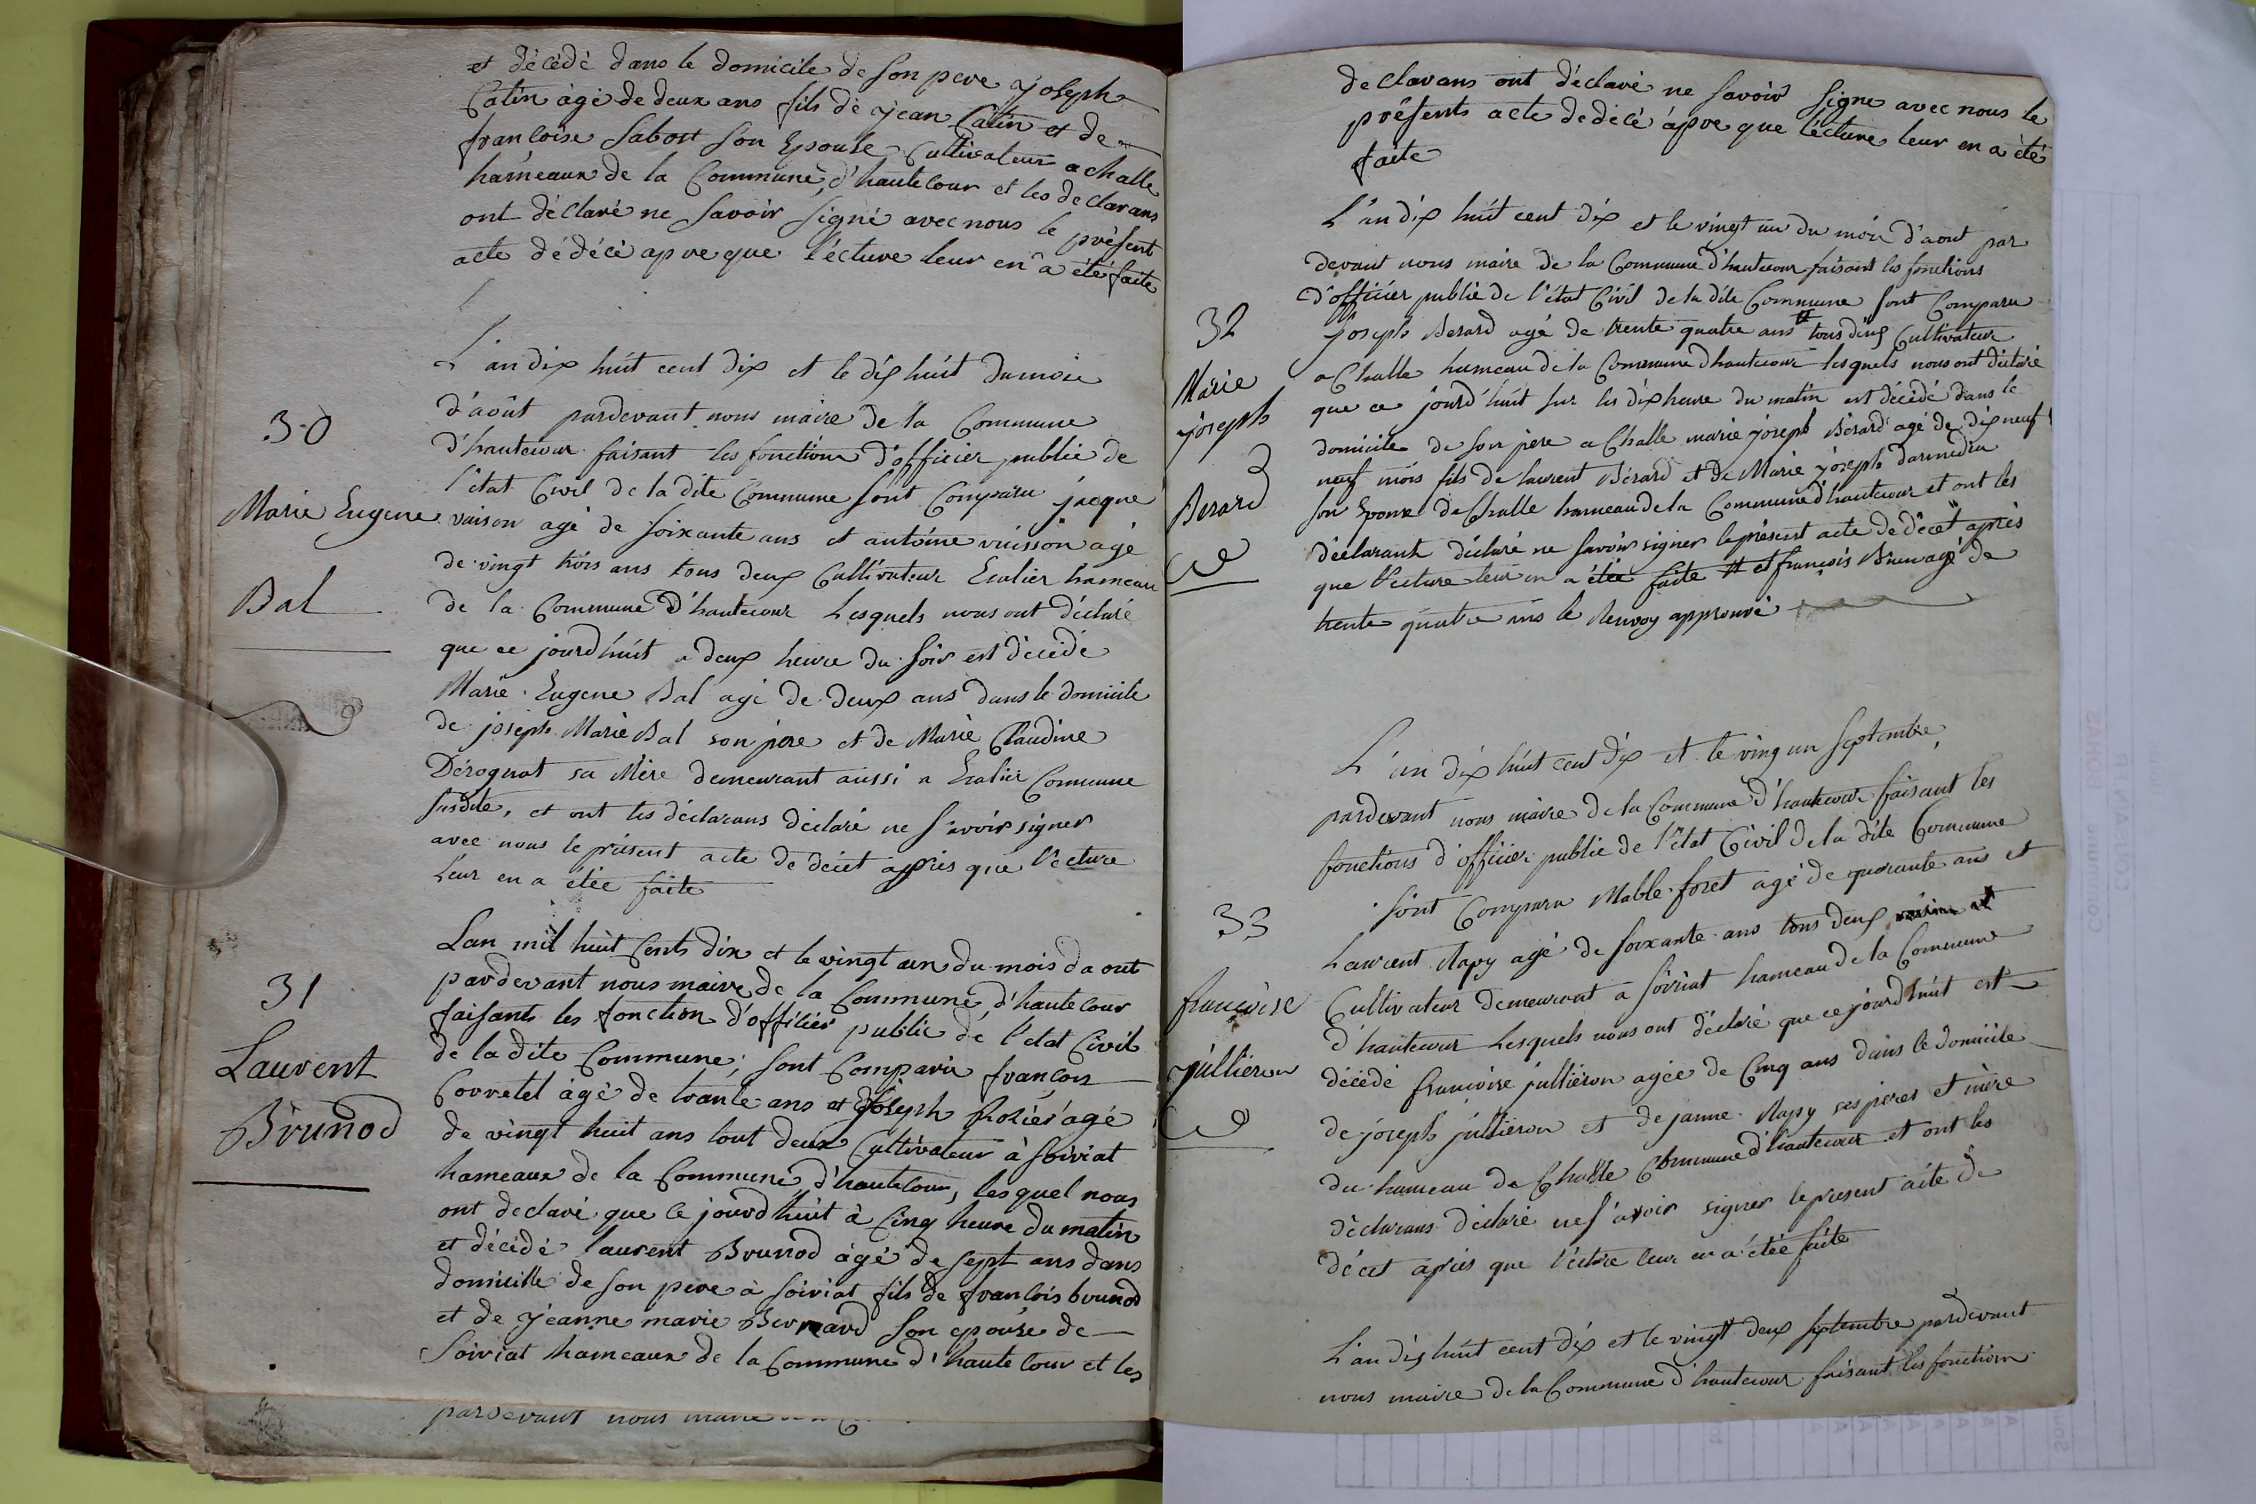 et décédé dans le domicile de son pere Joseph
Catin àgé de deux ans fils de jean Catin et de
francoise Sabost son Epouse Cultivateur a challe
hameaux de la Commune d'hautecour et les declarans
ont déclaré ne savoir signé avec nous le présent
acte dédécé apre que l'écture leur en a été faite
L'an dix huit cent dix et le dix huit du mois
d'août pardevant nous maire de la Commune
30
d'hautecour faisant les fonctions d'officier public de
l'état Civil de la dite Commune sont Comparu jacque
Marie Eugene
vaison agé de soixante ans et antoine vuisson agé
de vingt trois ans tous deux Cultivateur Eculier hameau
Bal
de la Commune d'hautecour Lesquels nous ont déclaré
que ce jourd'huit a deux heure du soir est décédé
Marie Eugene Bal agé de deux ans dans le domicile
de joseph Marie Bal son père et de Marie Claudine
Dérognat sa Mère demeurant aussi a Eculier Commune
susdite, et ont les déclarans déclaré ne savoir signer
avec nous le présent acte de décet apprès que l'ecture
Leur en a étée faite
Lan mil huit Cents dix et le vingt un du mois daout
pardevant nous maire de la Commune d'hautecour
31
faisants les fonction d'officier public de l'etat Civil
de la dite Commune, sont Comparu françois
Laurent
Corretel àgé de trante ans et Joseph Rosier àgé
Brunod
de vingt huit ans tout deux Cultivateur à Soiriat
hameaux de la Commune d'hautecour, lesquel nous
ont declaré que ce jourd'huit à Cinq heure du matin
et décédé laurent Brunod àgé de sept ans dans
domicille de son pere à soiriat fils de francois brunod
et de jeanne marie Bernard son epouse de
Soiriat hameaux de la Commune d'hautecour et les
pardevant nous maire
declarans ont déclaré ne savoir signe avec nous le
présents acte dedécé àpre que l'écture leur en a été
faite
L'an dix huit cent dix et le vingt un du mois d'aout par
devant nous maire de la Commune d'hautecour faisant les fonctions
d'officier public de l'état Civil de la dite Commune sont Comparu
32
joseph Berard agé de trente quatre ans # tous deux Cultivateur
a Challe hameau de la Commune d'hautecour lesquels nous ont déclaré
Marie
que ce jourd'huit sur les dix heure du matin est décédé dans le
joseph
domicile de son père a Challe marie joseph Bérard agé de dix neuf
neuf mois fils de laurent Bérard et de Marie joseph darmedin
Berard
son Epouse de Challe hameau de la Commune d'hautecour et ont les
déclarants déclaré ne savoir signer le présent acte de décet après
que l'ecture leur en a étée faite # et françois Brun agé de
trente quatre ans le Renvoy approuvé
L'an dix huit cent dix et le ving un septembre
pardevant nous maire de la Commune d'hautecour faisant les
fonctions d'officier public de l'état Civil de la dite Commune
sont Comparu Mable foret agé de quarante ans et
33
Laurent Rapy agé de soixante ans tous deux
francoise
Cultivateur demeurant a soiriat hameau de la Commune
d'hautecour Lesquels nous ont déclaré que ce jourd'huit est
jullieron
décédé françoise jullieron agée de Cinq ans dans le domicile
de joseph jullieron et de janne Rapy ses peres et mère
du hameau de Challe Commune d'hautecour et ont les
déclarans déclaré ne savoir signer le present acte de
décet apriès que l'écture leur en a étée faite
L'an dix huit cent dix et le vingt deux septembre pardevant
nous maire de la Commune d'hautecour faisant les fonction